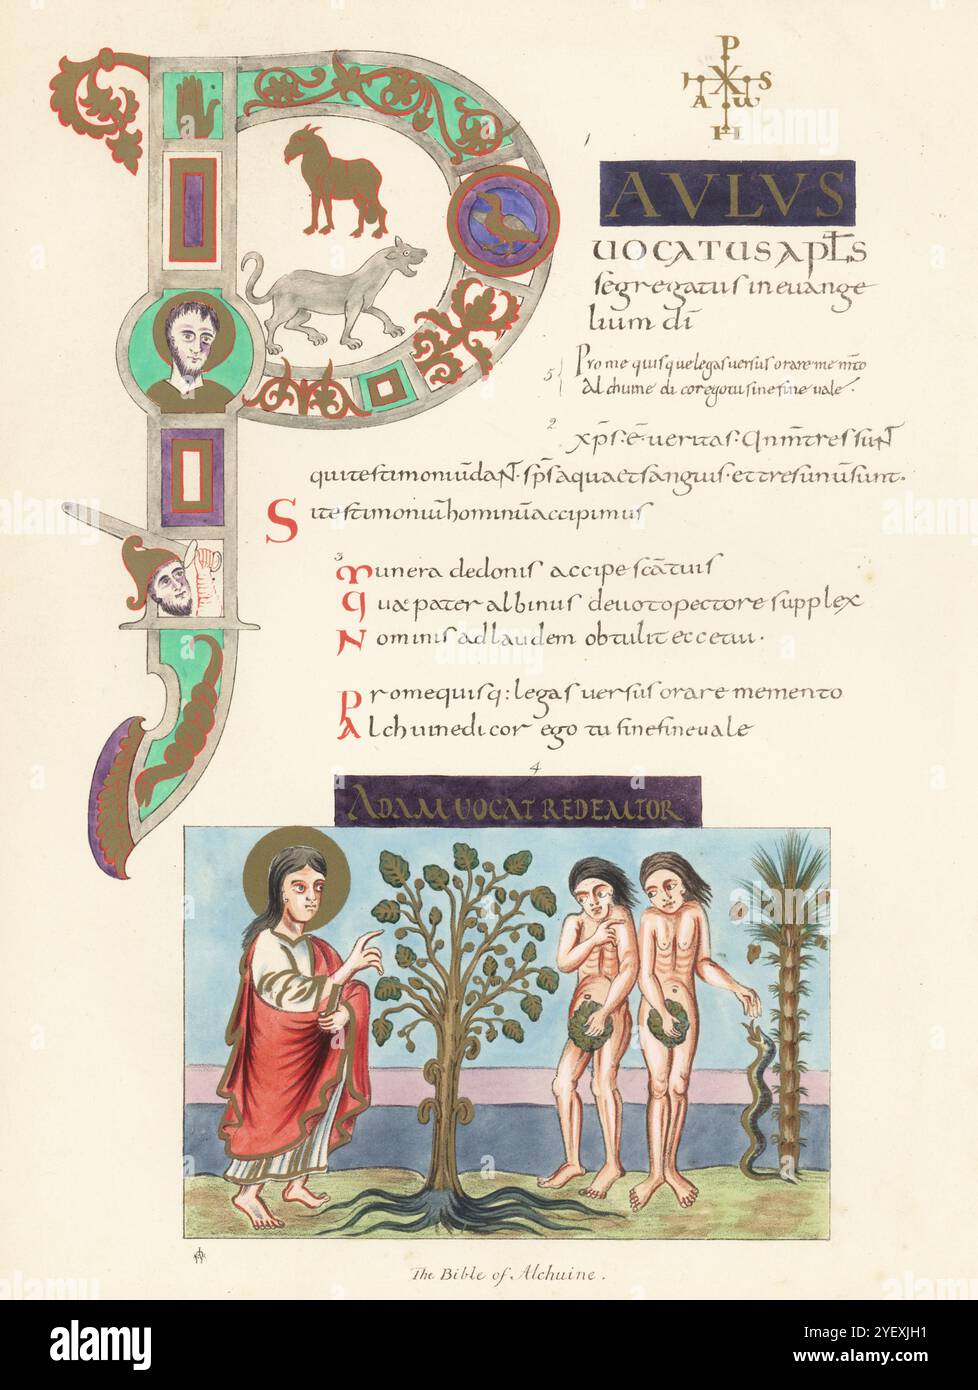 P
A ω
S
H
1
AVLVS
UOCATUS APLS
segregatus in euange
lium di
5
Pro me quisque legas versus orare memto
Alchuine di cor ego tu sine fine vale.
2
xps : e veritas : Qnm tres sunt
qui testimoniu dant. sps aqua et sanguis. et tres unu sunt.
Si testimoniu hominu accipimus
3
Munera de donis accipe sca tuis
Quae pater albinus devoto pectore supplex
Nominis ad laudem obtulit ecce tui.
Pro me quisq: legas versus orare memento
Alchuine di cor ego tu sine fine vale
4
ADAM VOCAT REDEMTOR
The Bible of Alchuine.
alamy
Image ID: 2YEXJH1
www.alamy.com